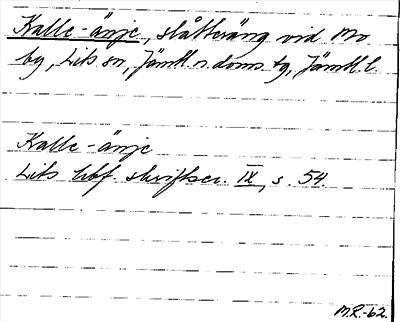 Kalle-änje, slåtteräng vid Mo
by, Lits sn, Jämtl. n. doms. tg, Jämtl. l.
Kalle-änje
Lits hbf. skriftser. IX, s. 54.
M.R.-62.